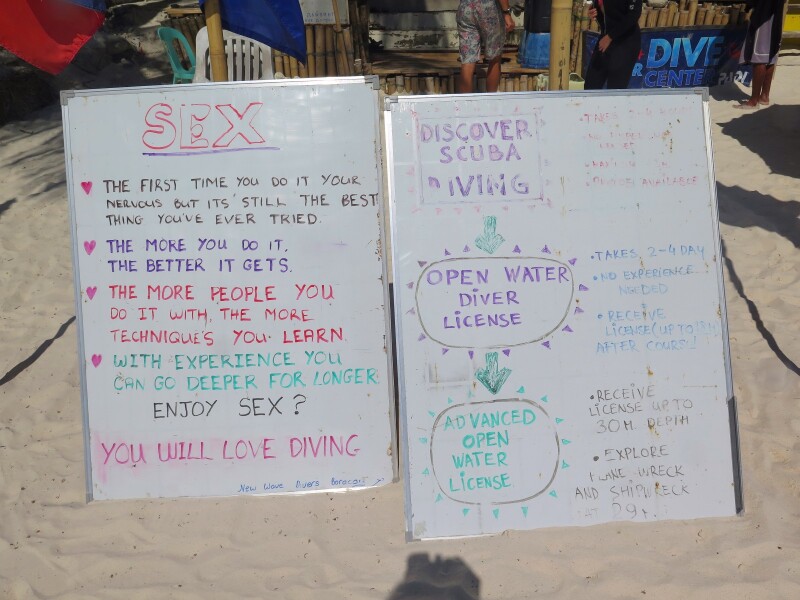 SEX
THE FIRST TIME YOU DO IT YOUR
NERVOUS BUT ITS STILL THE BEST
THING YOU'VE EVER TRIED.
THE MORE YOU DO IT,
THE BETTER IT GETS.
THE MORE PEOPLE YOU
DO IT WITH, THE MORE
TECHNIQUE'S YOU LEARN.
WITH EXPERIENCE YOU
CAN GO DEEPER FOR LONGER
ENJOY SEX?
YOU WILL LOVE DIVING
New Wave Divers Boracay
DISCOVER
SCUBA
DIVING
TAKES
AVAILABLE
OPEN WATER
DIVER
LICENSE
• TAKES 2-4 DAY
• NO EXPERIENCE
NEEDED
• RECEIVE
LICENSE (UP TO
AFTER COURSE!
ADVANCED
OPEN
WATER
LICENSE
• RECEIVE
LICENSE UP TO
30M DEPTH
• EXPLORE
WRECK
AND SHIPWRECK
DIVE
CENTER